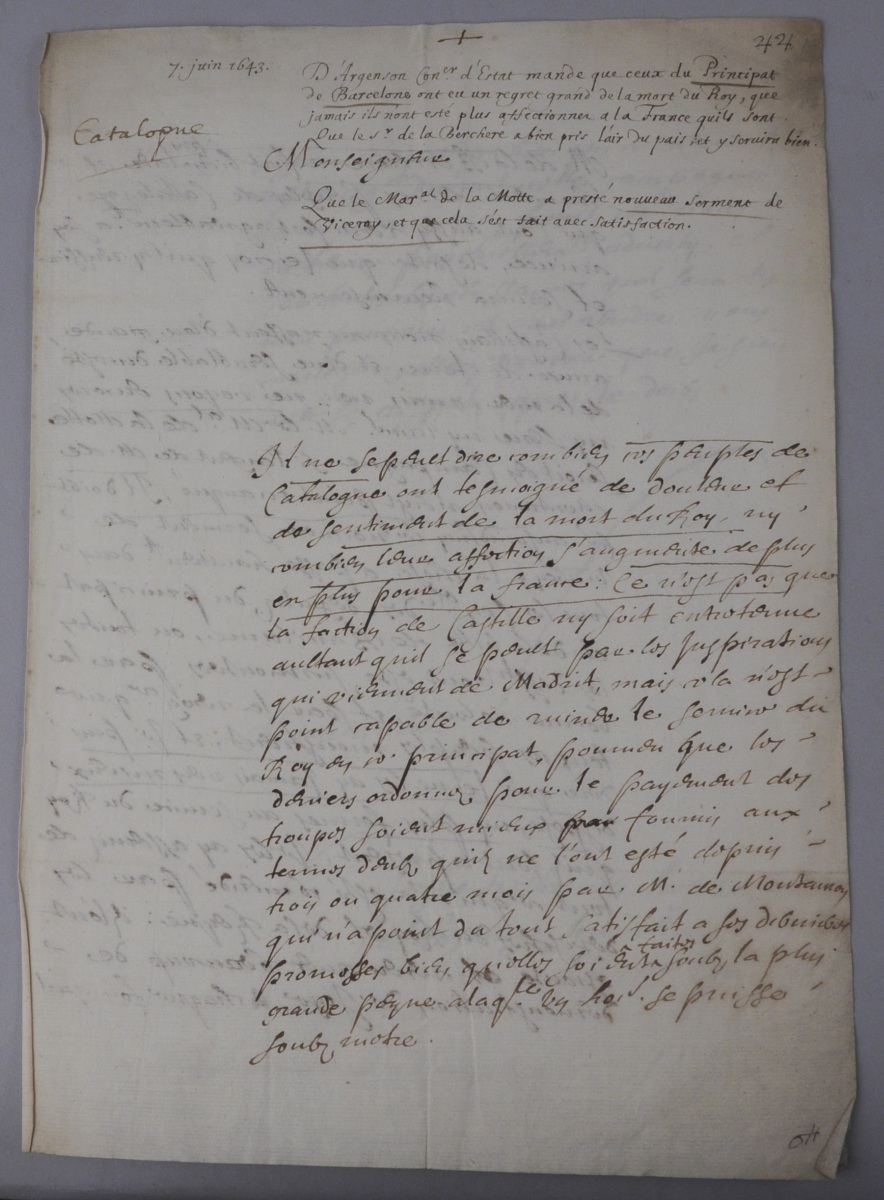 44
7. juin 1643.
D'Argenson Con.er d'Estat mande que ceux du Principat
de Barcelone ont eu un regret grand de la mort du Roy, que
jamais ils n'ont esté plus affectionnez a la France quils sont
Que le s.r de la Berchere a bien pris l'air du pais, et y servira bien.
Catalogne
Monseigneur
Que le Mar.al de la Motte a presté nouveau serment de
Viceroy, et que cela s'est fait avec satisfaction.
Il ne se peult dire combien ces peuples de
Catalogne ont tesmoigné de douleur et
de sentiment de la mort du Roy, ny
combien leur affection s'augmente de plus
en plus pour la france: Ce n'est pas que
la faction de Castille ny soit entretenue
aultant quil se peult par les Inspirations
qui viennent de Madrit, mais cela n'est
point capable de ruiner le service du
Roy en ce principat, pourveu que les
deniers ordonnez pour le payement des
troupes soient mieux fournis aux
termes deubz quilz ne l'ont esté depuis
trois ou quatre mois par M. de
qui n'a point du tout satisfait a ses
promesses bien quelles soient faites soubz la plus
grande peyne a laq.le un ho.e se puisse
soubzmettre.